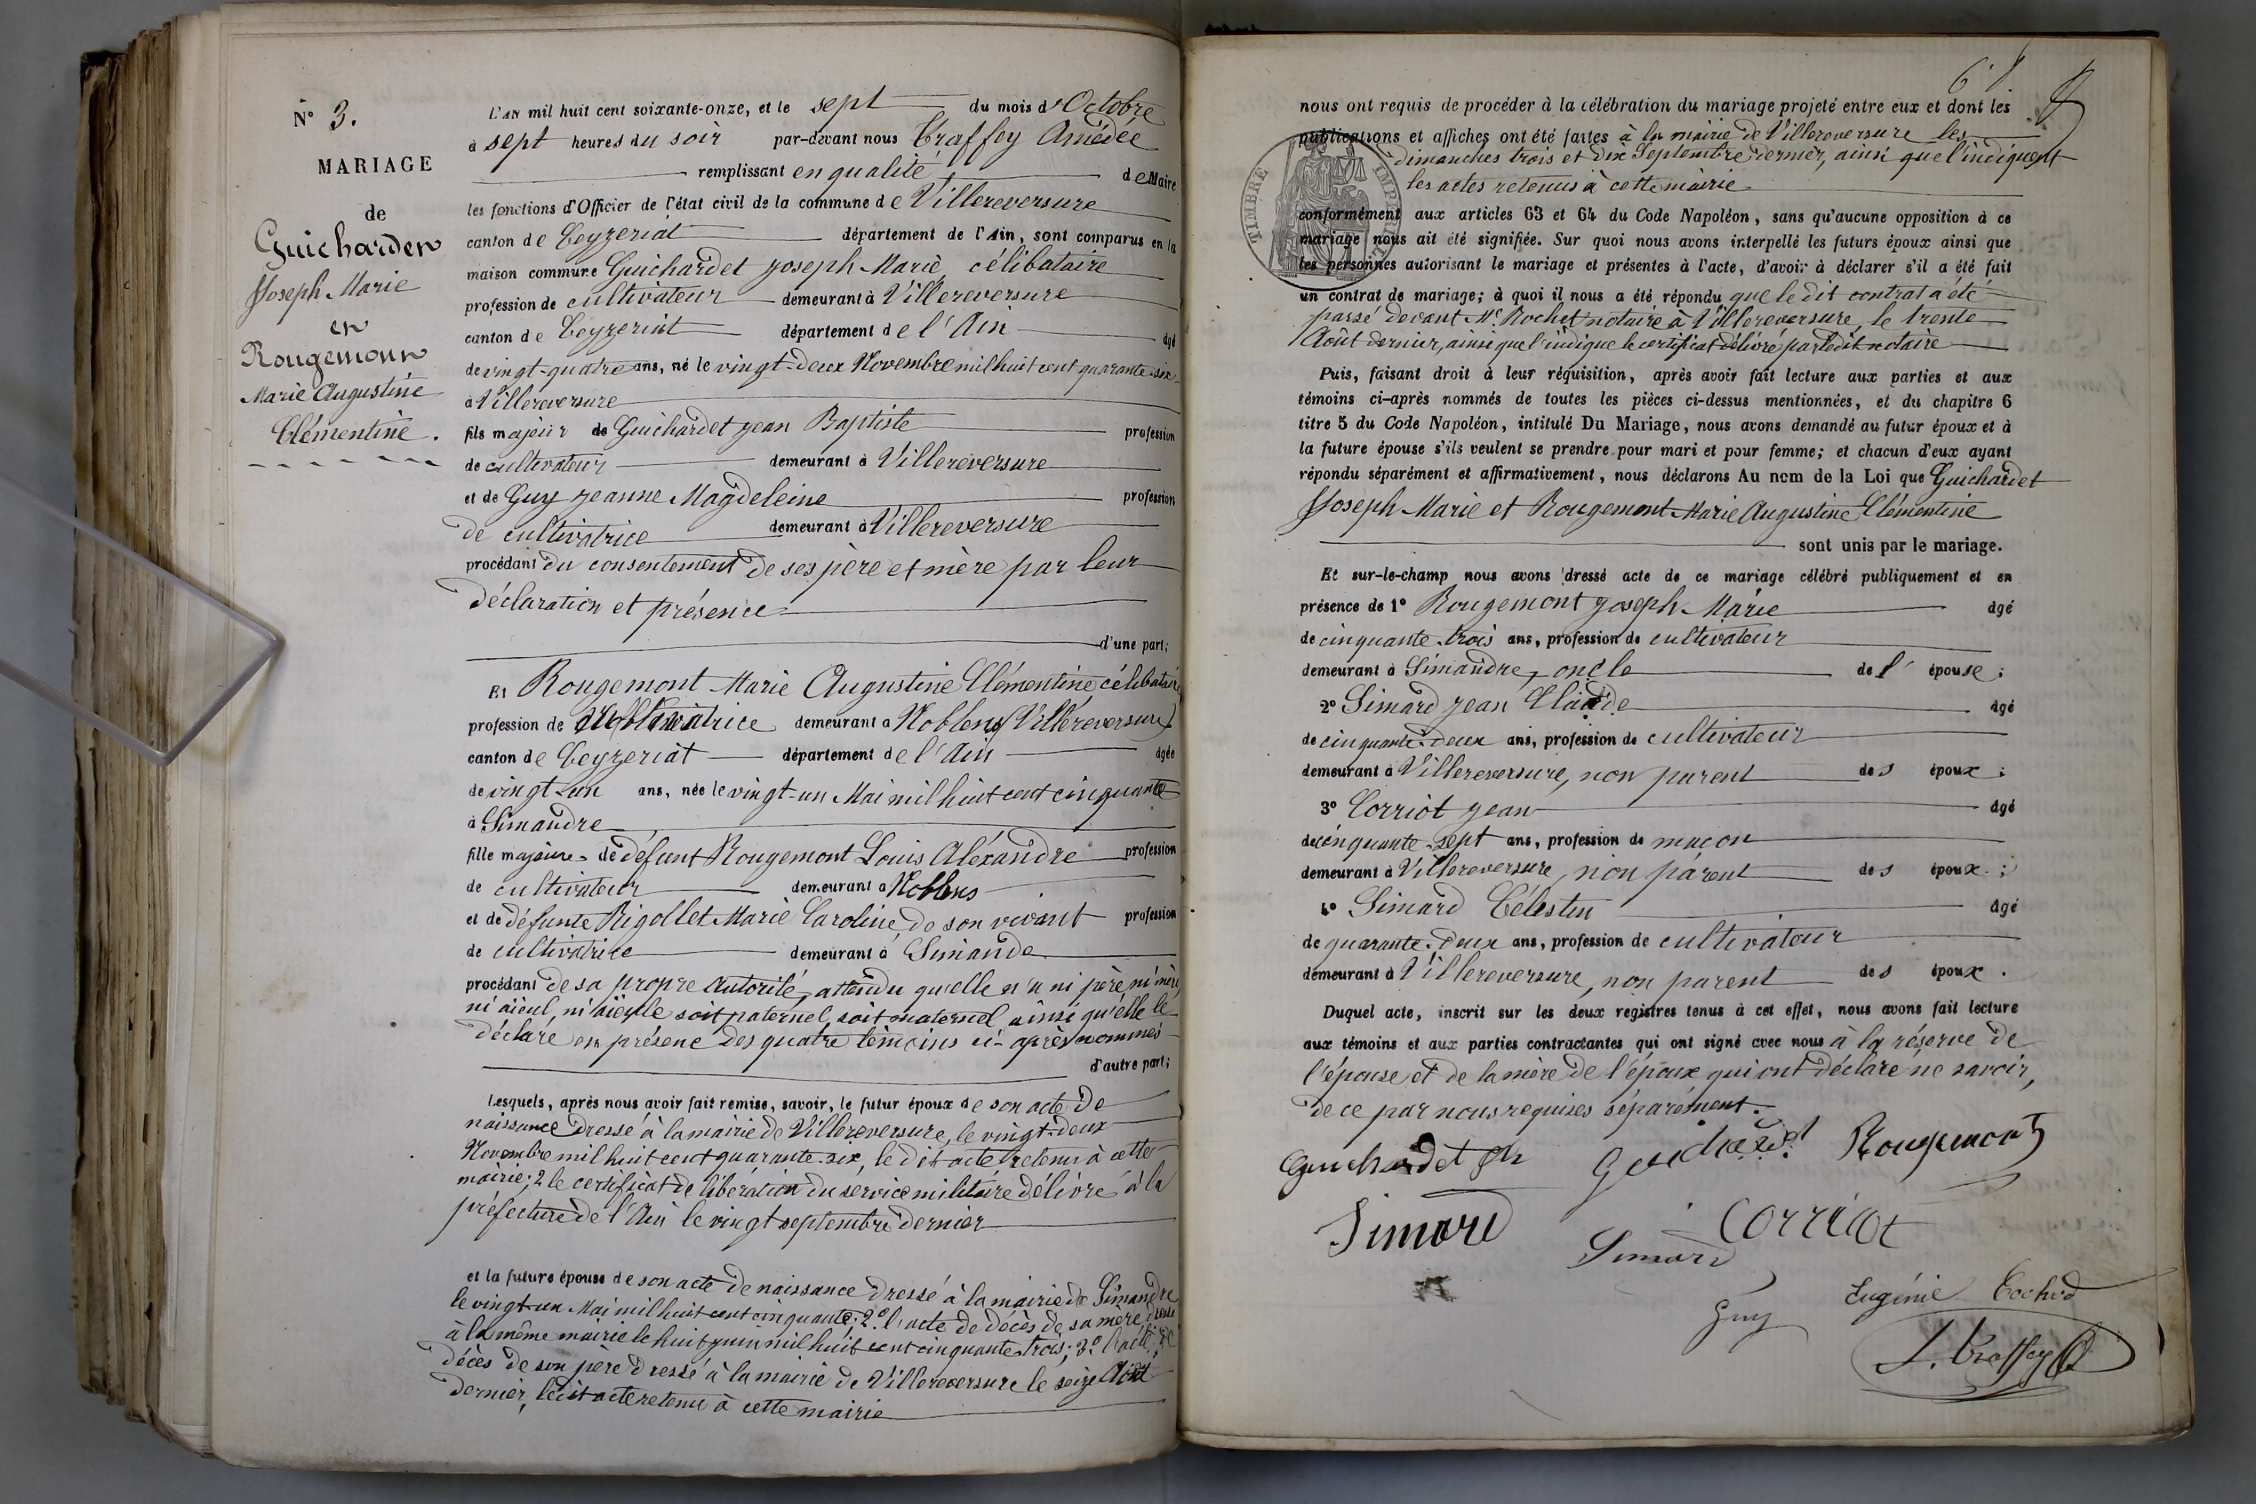 N° 3.
MARIAGE
de
Guichardet
Joseph Marie
et
Rougemont
Marie Augustine
Clémentine.
L'AN mil huit cent soixante-onze, et le sept du mois d'Octobre
à sept heures du soir par-devant nous Traffey Amédée
remplissant en qualité de Maire
les fonctions d'Officier de l'état civil de la commune de Villereversure
canton de Ceyzeriat département de l'Ain, sont comparus en la
maison commune Guichardet Joseph Marie, célibataire
profession de cultivateur demeurant à Villereversure
canton de Ceyzeriat département de l'Ain âgé
de vingt-quatre ans, né le vingt-deux Novembre mil huit cent quarante-six
à Villereversure
fils majeur de Guichardet Jean Baptiste profession
de cultivateur demeurant à Villereversure
et de Guy Jeanne Magdeleine profession
de cultivatrice demeurant à Villereversure
procédant du consentement de ses père et mère par leur
déclaration et présence
d'une part;
Et Rougemont Marie Augustine Clémentine, célibataire
profession de cultivatrice demeurant à Noblens (Villereversure)
canton de Ceyzeriat département de l'Ain âgée
de vingt-un ans, née le vingt-un Mai mil huit cent cinquante
à Simandre
fille majeure de défunt Rougemont Louis Aléxandre profession
de cultivateur demeurant à Noblens
et de défunte Rigollet Marie Caroline, de son vivant profession
de cultivatrice demeurant à Simande
procédant de sa propre autorité, attendu qu'elle n'a ni père, ni mère,
ni aïeul, ni aïeule soit paternel, soit maternel ainsi qu'elle le
déclaré en présence des quatre témoins ci-après nommés
d'autre part;
Lesquels, après nous avoir fait remise, savoir, le futur époux de son acte de
naissance dressé à la mairie de Villereversure, le vingt-deux
Novembre mil huit cent quarante-six, le dit acte retenu à cette
mairie; 2 le certificat de libération du service militaire délivré à la
préfecture de l'Ain le vingt septembre dernier
et la future épouse de son acte de naissance dressé à la mairie de Simandre
le vingt-un Mai mil huit cent cinquante; 2° l'acte de décès de sa mère, dressé
à la même mairie le huit juin mil huit cent cinquante trois; 3° l'acte de
décès de son père dressé à la mairie de Villereversure le seize Août
dernier, le dit acte retenu à cette mairie
nous ont requis de procéder à la célébration du mariage projeté entre eux et dont les
publications et affiches ont été faites à la mairie de Villereversure les
dimanches trois et dix Septembre dernier, ainsi que l'indiquent
les actes retenus à cette mairie
TIMBRE IMPÉRIAL
conformément aux articles 63 et 64 du Code Napoléon, sans qu'aucune opposition à ce
mariage nous ait été signifiée. Sur quoi nous avons interpellé les futurs époux ainsi que
les personnes autorisant le mariage et présentes à l'acte, d'avoir à déclarer s'il a été fait
un contrat de mariage; à quoi il nous a été répondu que le dit contrat a été
passé devant Me Rochet notaire à Villereversure, le trente
Août dernier, ainsi que l'indique le certificat délivré par ledit notaire
Puis, faisant droit à leur réquisition, après avoir fait lecture aux parties et aux
témoins ci-après nommés de toutes les pièces ci-dessus mentionnées, et du chapitre 6
titre 5 du Code Napoléon, intitulé Du Mariage, nous avons demandé au futur époux et à
la future épouse s'ils veulent se prendre pour mari et pour femme; et chacun d'eux ayant
répondu séparément et affirmativement, nous déclarons Au nom de la Loi que Guichardet
Joseph Marie et Rougemont Marie Augustine Clémentine
sont unis par le mariage.
Et sur-le-champ nous avons dressé acte de ce mariage célébré publiquement et en
présence de 1° Rougemont Joseph Marie âgé
de cinquante-trois ans, profession de cultivateur
demeurant à Simandre, oncle de l'épouse;
2° Simard Jean Claude âgé
de cinquante-deux ans, profession de cultivateur
demeurant à Villereversure, non parent des époux;
3° Corriot Jean âgé
de cinquante-sept ans, profession de maçon
demeurant à Villereversure, non parent des époux;
4° Simard Célestin âgé
de quarante-deux ans, profession de cultivateur
demeurant à Villereversure, non parent des époux.
Duquel acte, inscrit sur les deux registres tenus à cet effet, nous avons fait lecture
aux témoins et aux parties contractantes qui ont signé avec nous à la réserve de
l'épouse et de la mère de l'époux qui ont déclaré ne savoir,
de ce par nous requises séparément.
Guichardet Guichardet Rougemont
Simard Corriot
Simard
Guy Eugénie